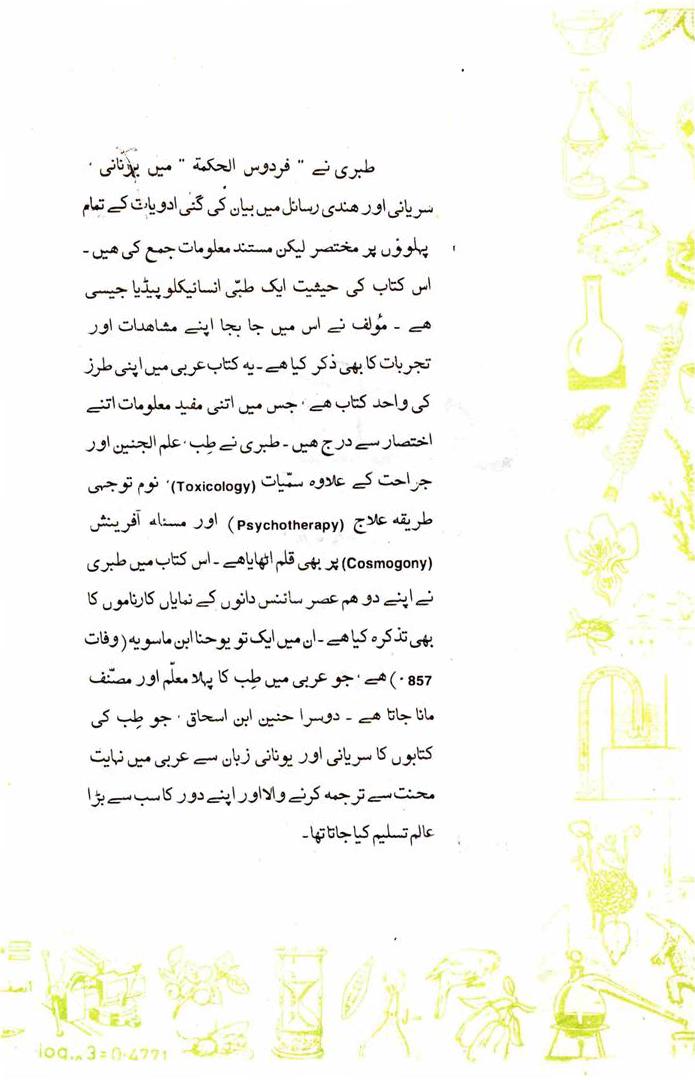 طبری نے " فردوس الحکمة " میں یونانی ،
سریانی اور هندی رسائل میں بیان کی گئی ادویات کے تمام
پہلوؤں پر مختصر لیکن مستند معلومات جمع کی هیں ۔
اس کتاب کی حیثیت ایک طبّی انسائیکلوپیڈیا جیسی
هے ۔ مؤلف نے اس میں جا بجا اپنے مشاهدات اور
تجربات کا بھی ذکر کیا هے ۔ یه کتاب عربی میں اپنی طرز
کی واحد کتاب هے ، جس میں اتنی مفید معلومات اتنے
اختصار سے درج هیں ۔ طبری نے طِب ، علم الجنین اور
جراحت کے علاوہ سمّیات (Toxicology)، نوم توجہی
طریقه علاج (Psychotherapy) اور مسئله آفرینش
(Cosmogony) پر بھی قلم اٹھایاهے ۔ اس کتاب میں طبری
نے اپنے دو هم عصر سائنس دانوں کے نمایاں کارناموں کا
بھی تذکرہ کیا هے ۔ ان میں ایک تو یوحنا ابن ماسویه (وفات
857ء) هے ، جو عربی میں طِب کا پہلا معلّم اور مصنّف
مانا جاتا هے ۔ دوسرا حنین ابن اسحاق ، جو طِب کی
کتابوں کا سریانی اور یونانی زبان سے عربی میں نہایت
محنت سے ترجمه کرنے والا اور اپنے دور کا سب سے بڑا
عالم تسلیم کیا جاتا تھا ۔
log₁₀ 3=0.4771